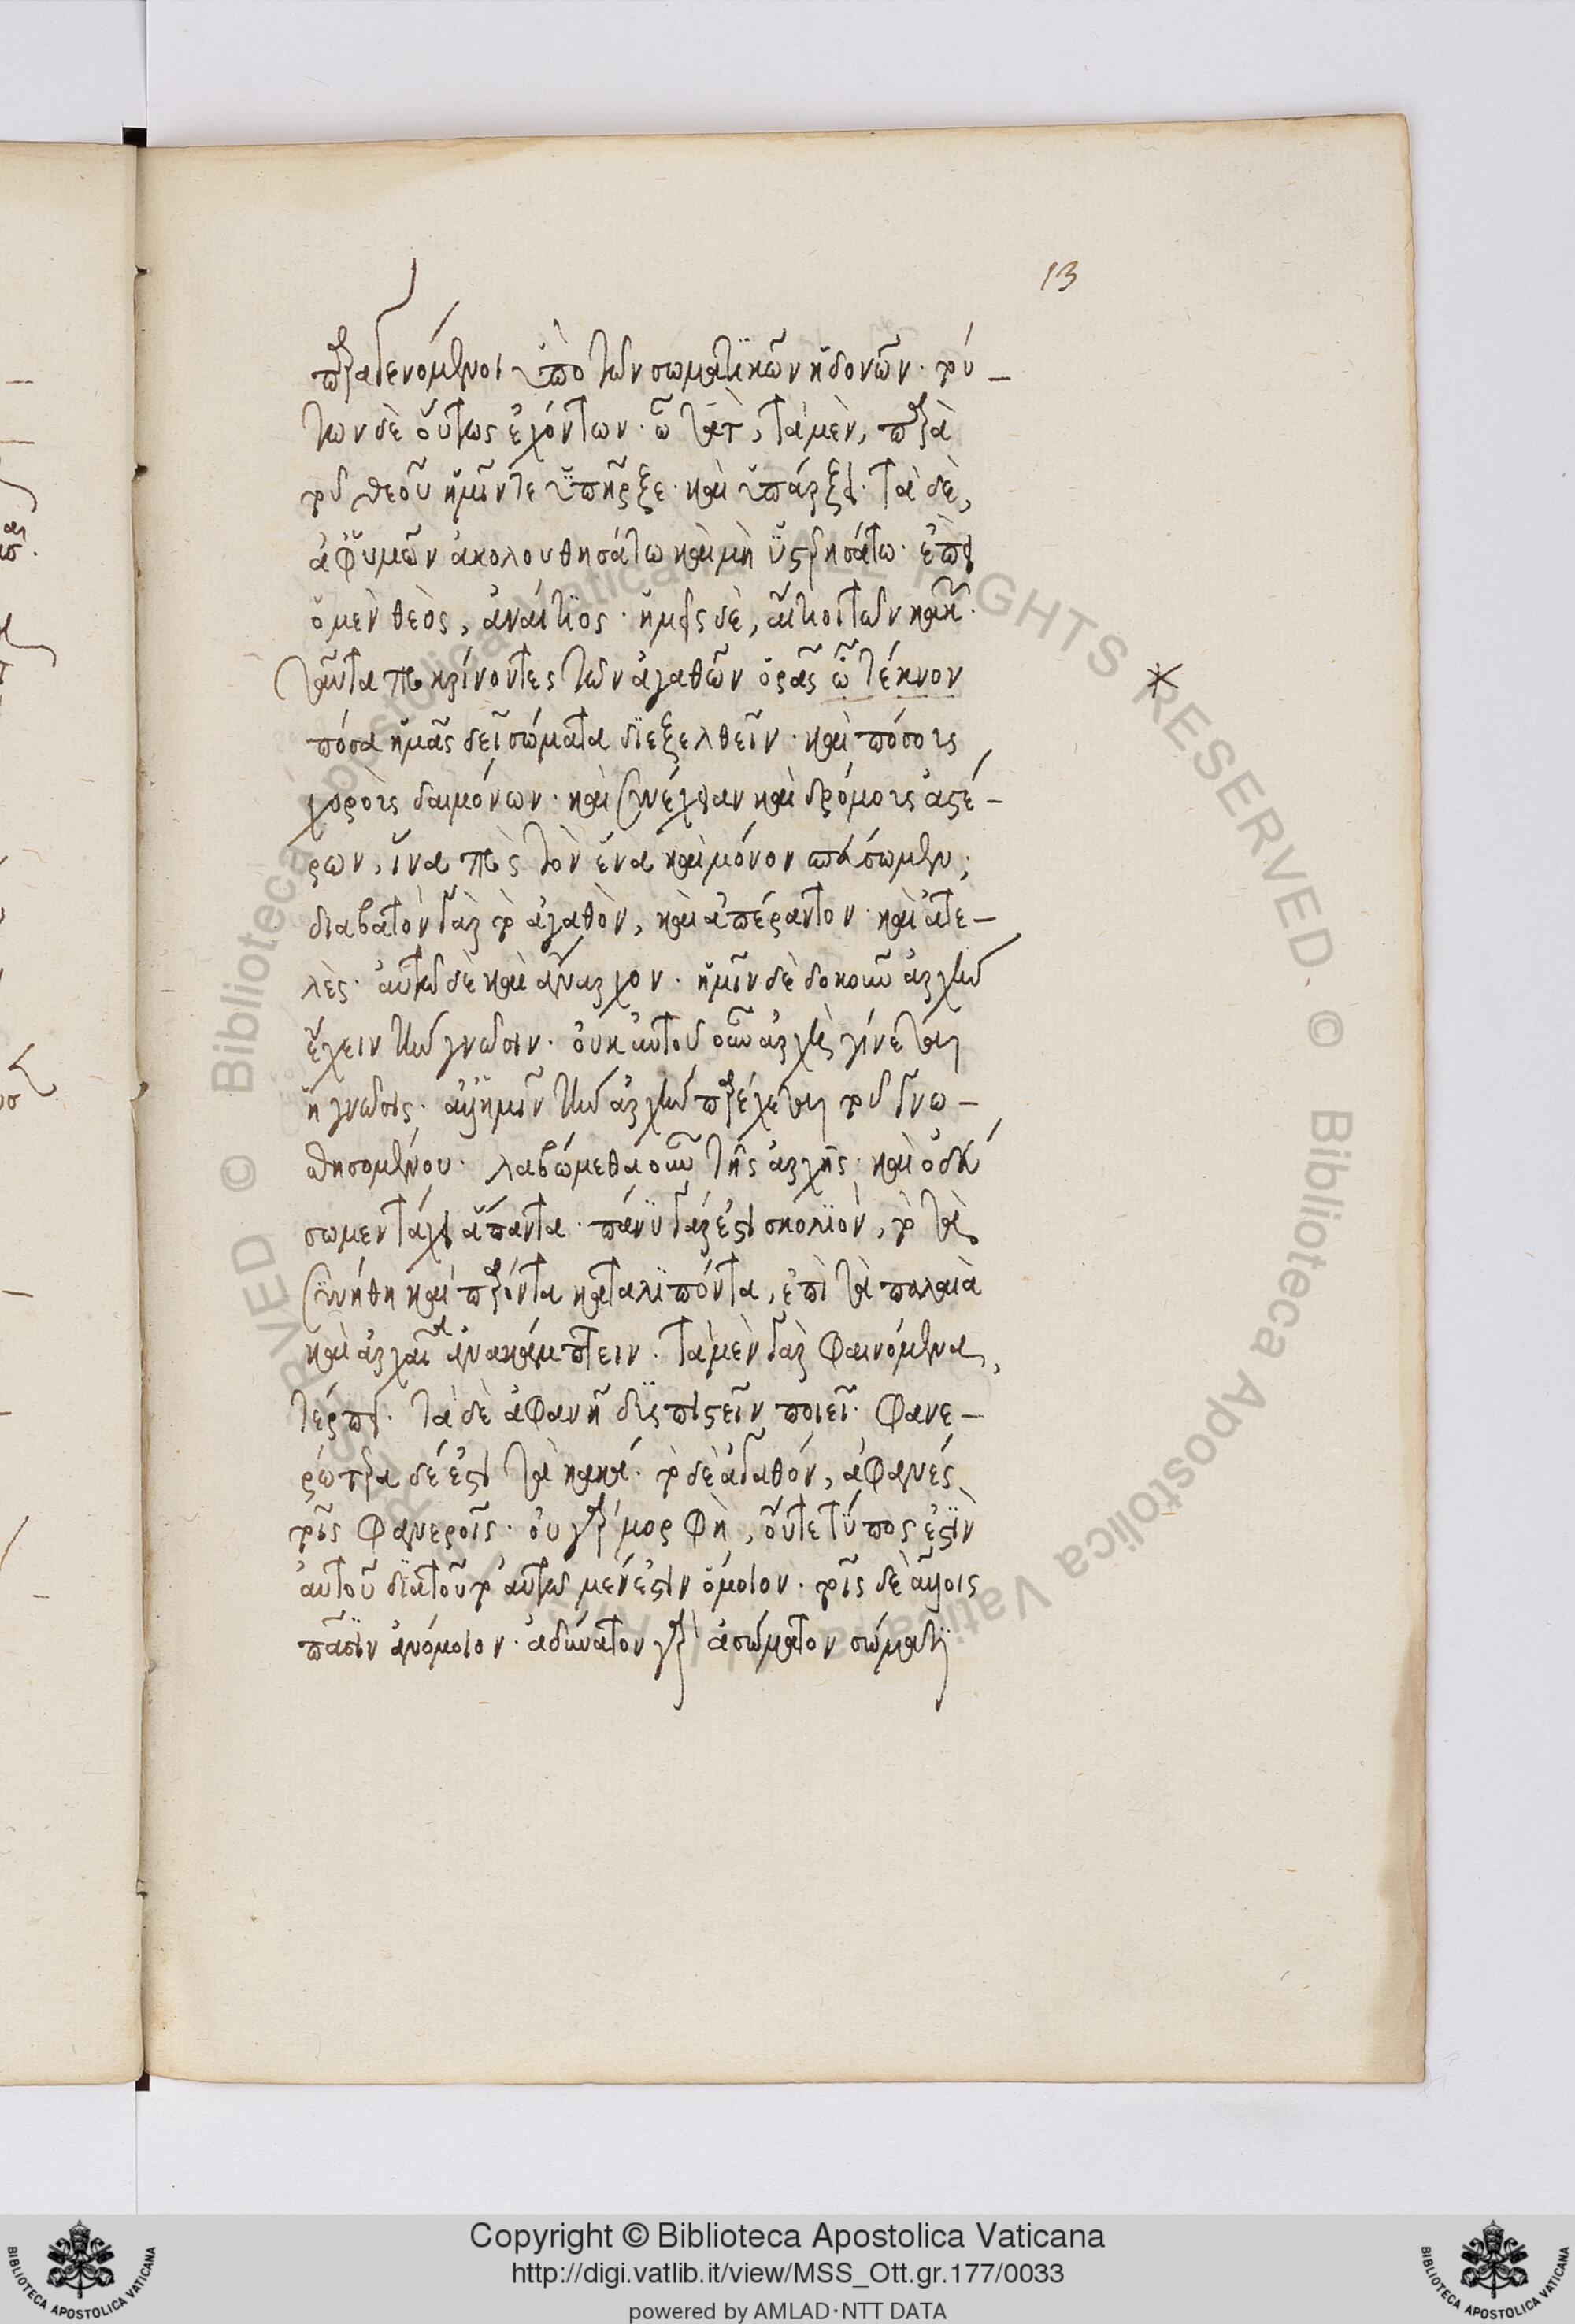 13
παραγενόμενοι ὑπὸ τῶν σωματικῶν ἡδονῶν· τού-
των δὲ οὕτως ἐχόντων· ὦ τὰτ, τὰ μὲν, παρὰ
τοῦ θεοῦ ἡμῖν τε ὑπῆρξε· καὶ ὑπάρξει· τὰ δὲ,
ἀφ' ὑμῶν ἀκολουθησάτω καὶ μὴ ὑστερησάτω· ἐπεὶ
ὁ μὲν θεὸς, ἀναίτιος· ἡμεῖς δὲ, αἴτιοι τῶν κακῶν·
ταῦτα προκρίνοντες τῶν ἀγαθῶν ὁρᾶς ὦ τέκνον
πόσα ἡμᾶς δεῖ σώματα διεξελθεῖν· καὶ πόσοις
χοροῖς δαιμόνων· καὶ συνέχειαν καὶ δρόμοις ἀστέ-
ρων, ἵνα πρὸς τὸν ἕνα καὶ μόνον σπεύσωμεν;
διαβατὸν γὰρ τὸ ἀγαθὸν, καὶ ἀπέραντον· καὶ ἀτε-
λὲς· αὐτῶ δὲ καὶ ἄναρχον· ἡμῖν δὲ δοκοῦν ἀρχὴν
ἔχειν τὴν γνῶσιν· οὐκ αὐτοῦ οὖν ἀρχὴ γίνεται
ἡ γνῶσις· ἀλλ' ἡμῖν τὴν ἀρχὴν παρέχεται τοῦ γνω-
σθησομένου· λαβώμεθα οὖν τῆς ἀρχῆς· καὶ ὁδεύ
σωμεν τάχει ἅπαντα· πάνυ γάρ ἐστι σκολιὸν, τὸ τὰ
συνήθη καὶ παρόντα καταλιπόντα, ἐπὶ τὰ παλαιὰ
καὶ ἀρχαῖα ἀνακάμπτειν· τὰ μὲν γὰρ φαινόμενα,
τέρπει· τὰ δὲ ἀφανῆ δυσπιστεῖν ποιεῖ· φανε-
ρώτερα δέ ἐστι τὰ κακά· τὸ δὲ ἀγαθόν, ἀφανές
τοῖς φανεροῖς· οὐ γὰρ μορφὴ, οὔτε τύπος ἐστὶν
αὐτοῦ διὰ τοῦτο αὐτῶ μέν ἐστιν ὅμοιον· τοῖς δὲ ἄλλοις
πᾶσιν ἀνόμοιον· ἀδύνατον γὰρ ἀσώματον σώματι
*
Copyright © Biblioteca Apostolica Vaticana
http://digi.vatlib.it/view/MSS_Ott.gr.177/0033
powered by AMLAD·NTT DATA